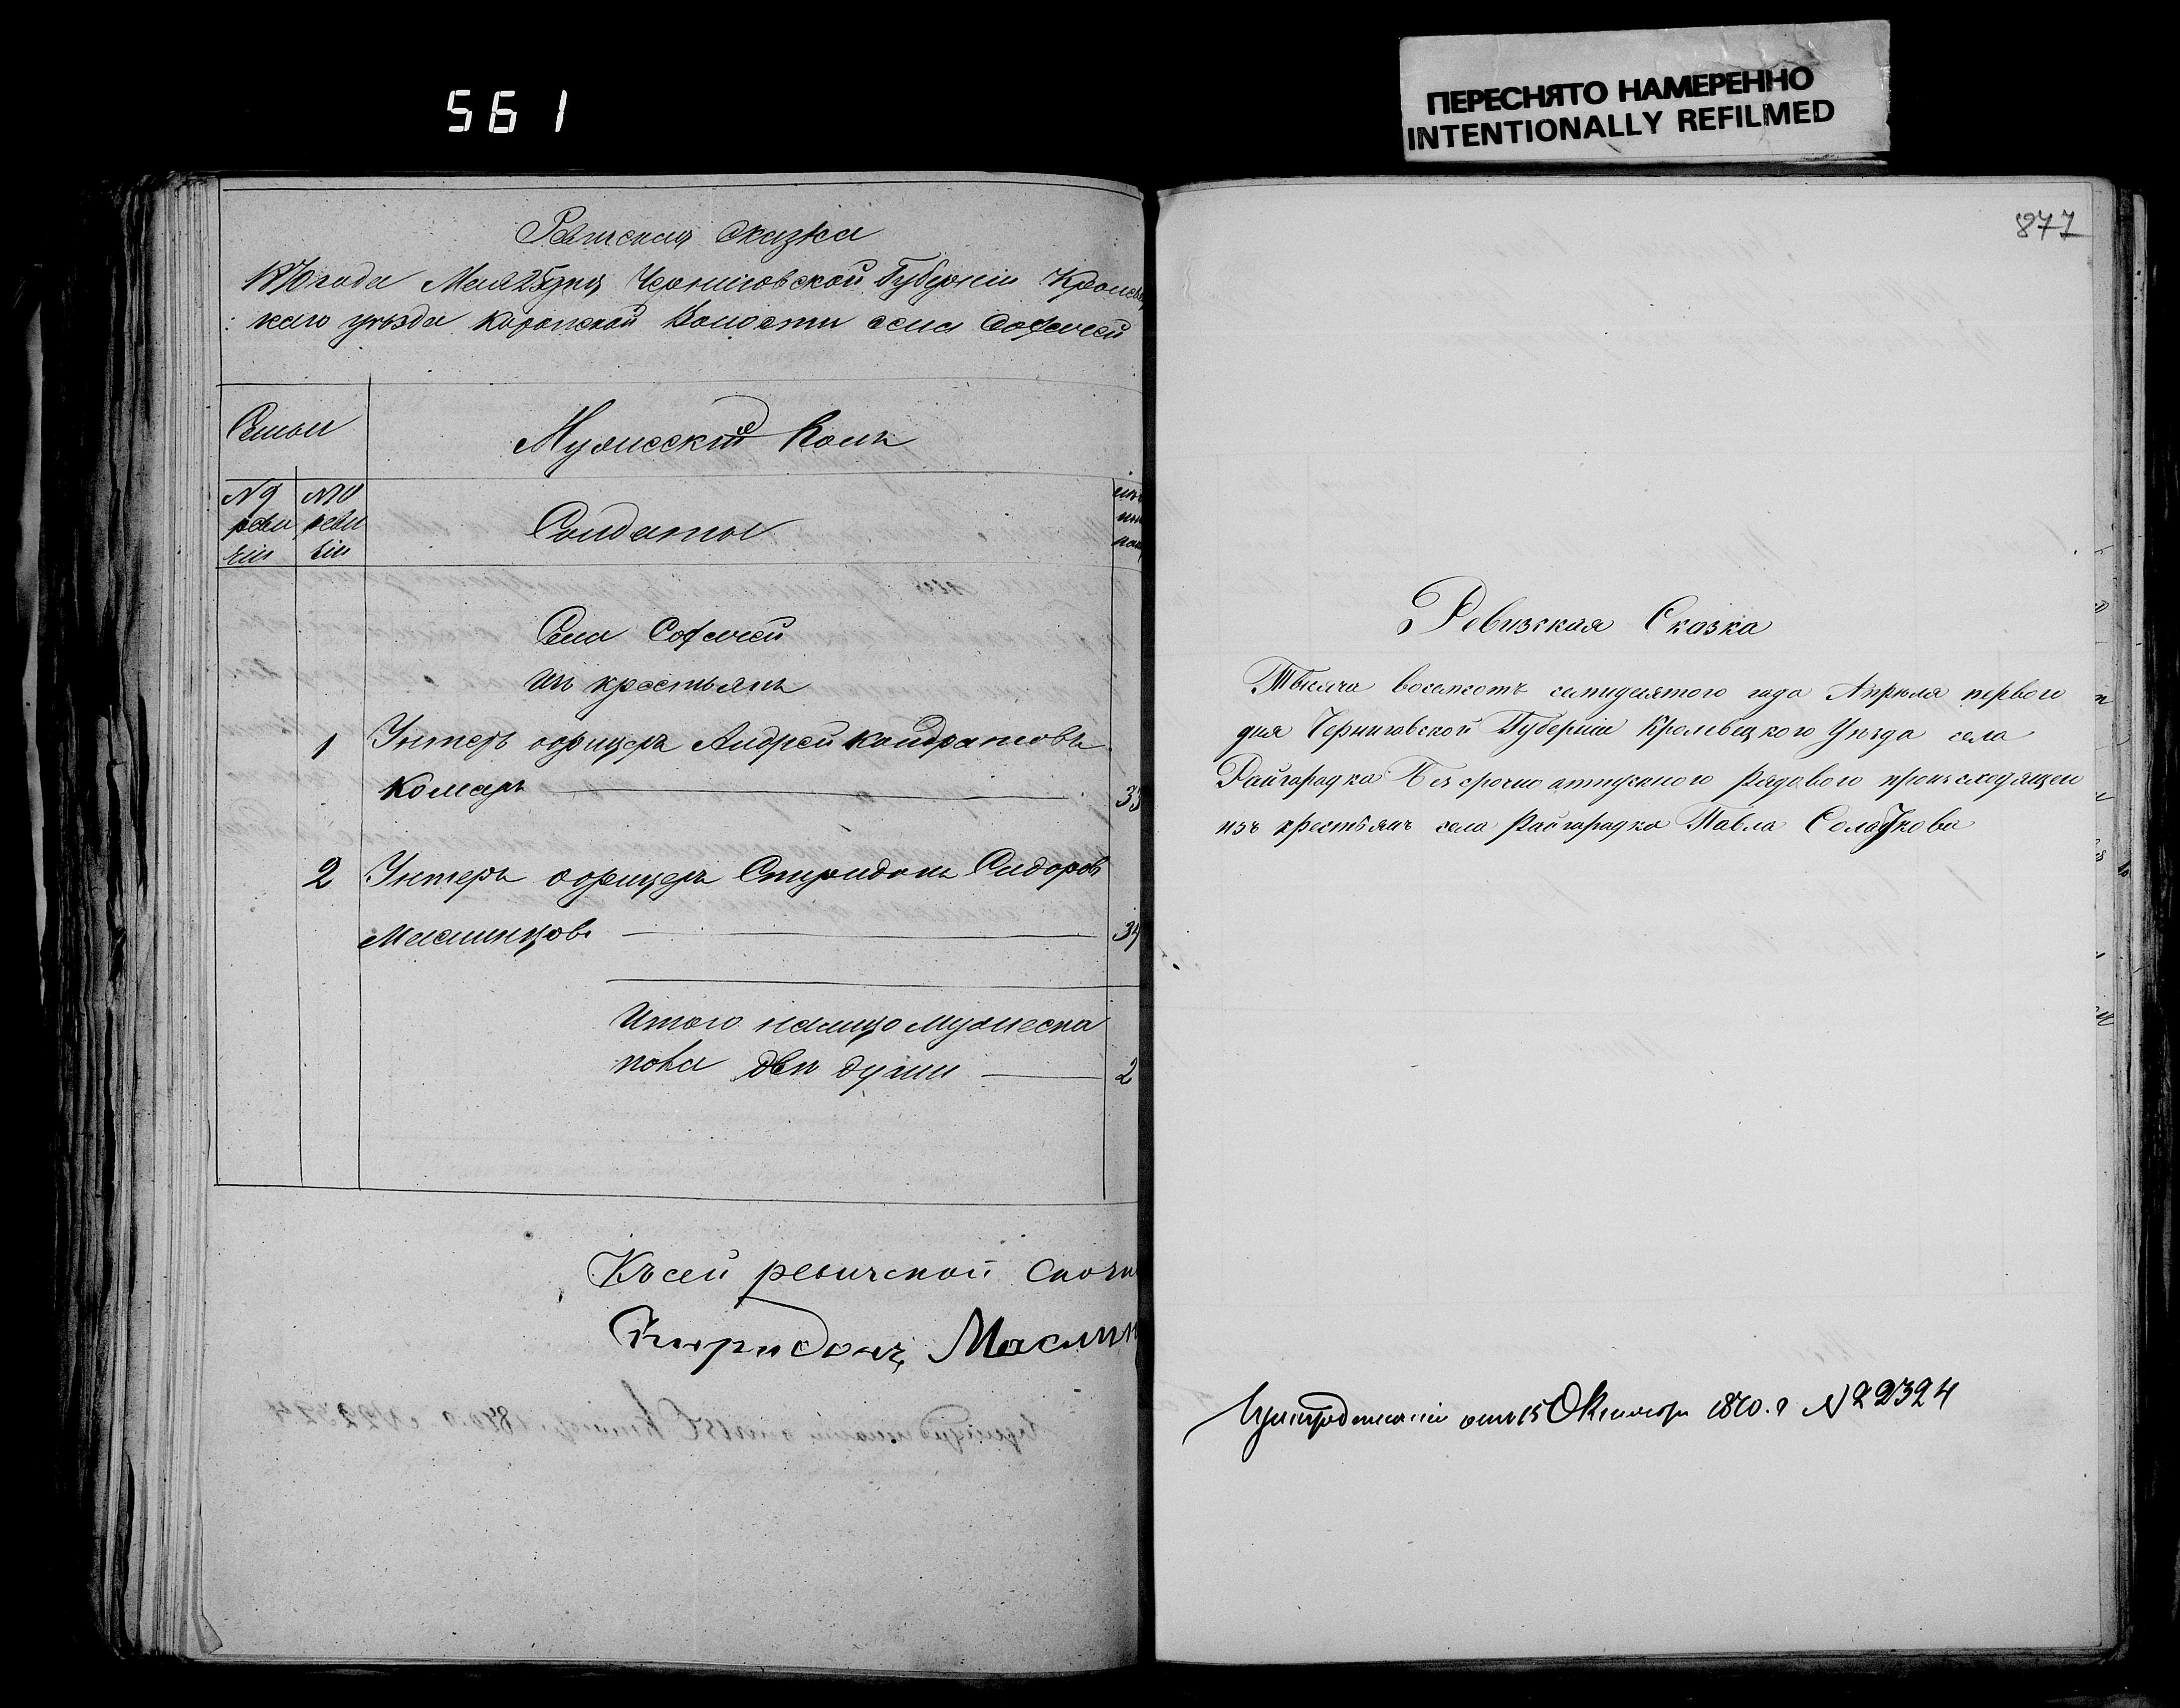 561
ПЕРЕСНЯТО НАМЕРЕННО
INTENTIONALLY REFILMED
Ревизская сказка
1870 года Мая 25 дня Черниговской Губерніи Кролевец
каго уѣзда Коропской Волости села
Семьи
Мужескій Полъ
N 9 N 10
реви реви
зіи зіи
Солдаты
Села
Изъ крестьянъ
1 Унтеръ офицеръ Андрей Кондратовъ
Комаръ 33
2 Унтеръ офицеръ Спиридонъ Сидоровъ
Маслинцовъ 34
Итого налицо мужеска
пола двѣ души 2
Къ сей ревизской сказк
Спиридонъ Маслин
877
Ревизская Сказка
Тысяча восемсотъ семидесятого года Апрѣля первого
дня Черниговской Губерніи Кролевецкого Уѣзда села
Райгородка Безсрочно отпускного Рядового происходящего
изъ крестьянъ села Райгородка Павла
При предписаніи отъ 15 Октября 1870. г N 22324